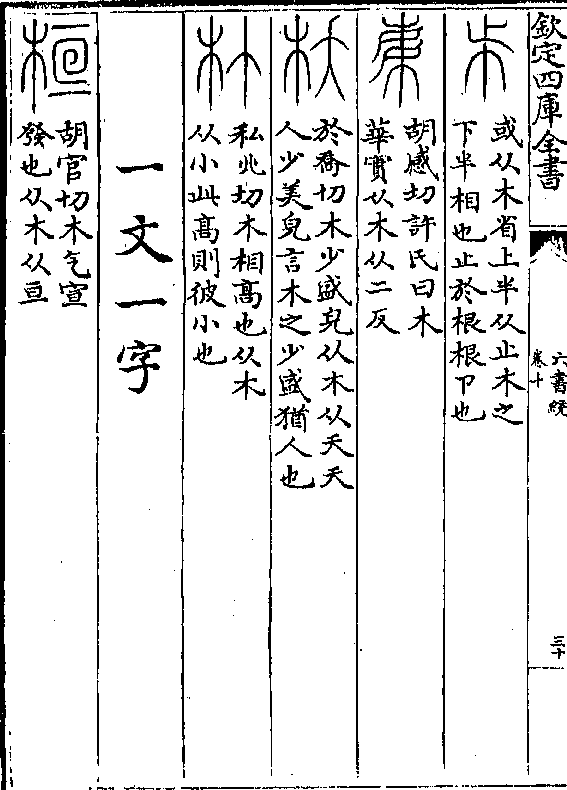 欽定四庫全書
六書統
卷十
三十
或从木省上半从止木之
下半相也止於根根卩也
胡感切許氏曰木
華實从木从二反
枖
於喬切木少盛皃从木从夭夭
人少美皃言木之少盛猶人也
私兆切木相高也从木
从小此高則彼小也
一文一字
桓
胡官切木气宣
發也从木从亘